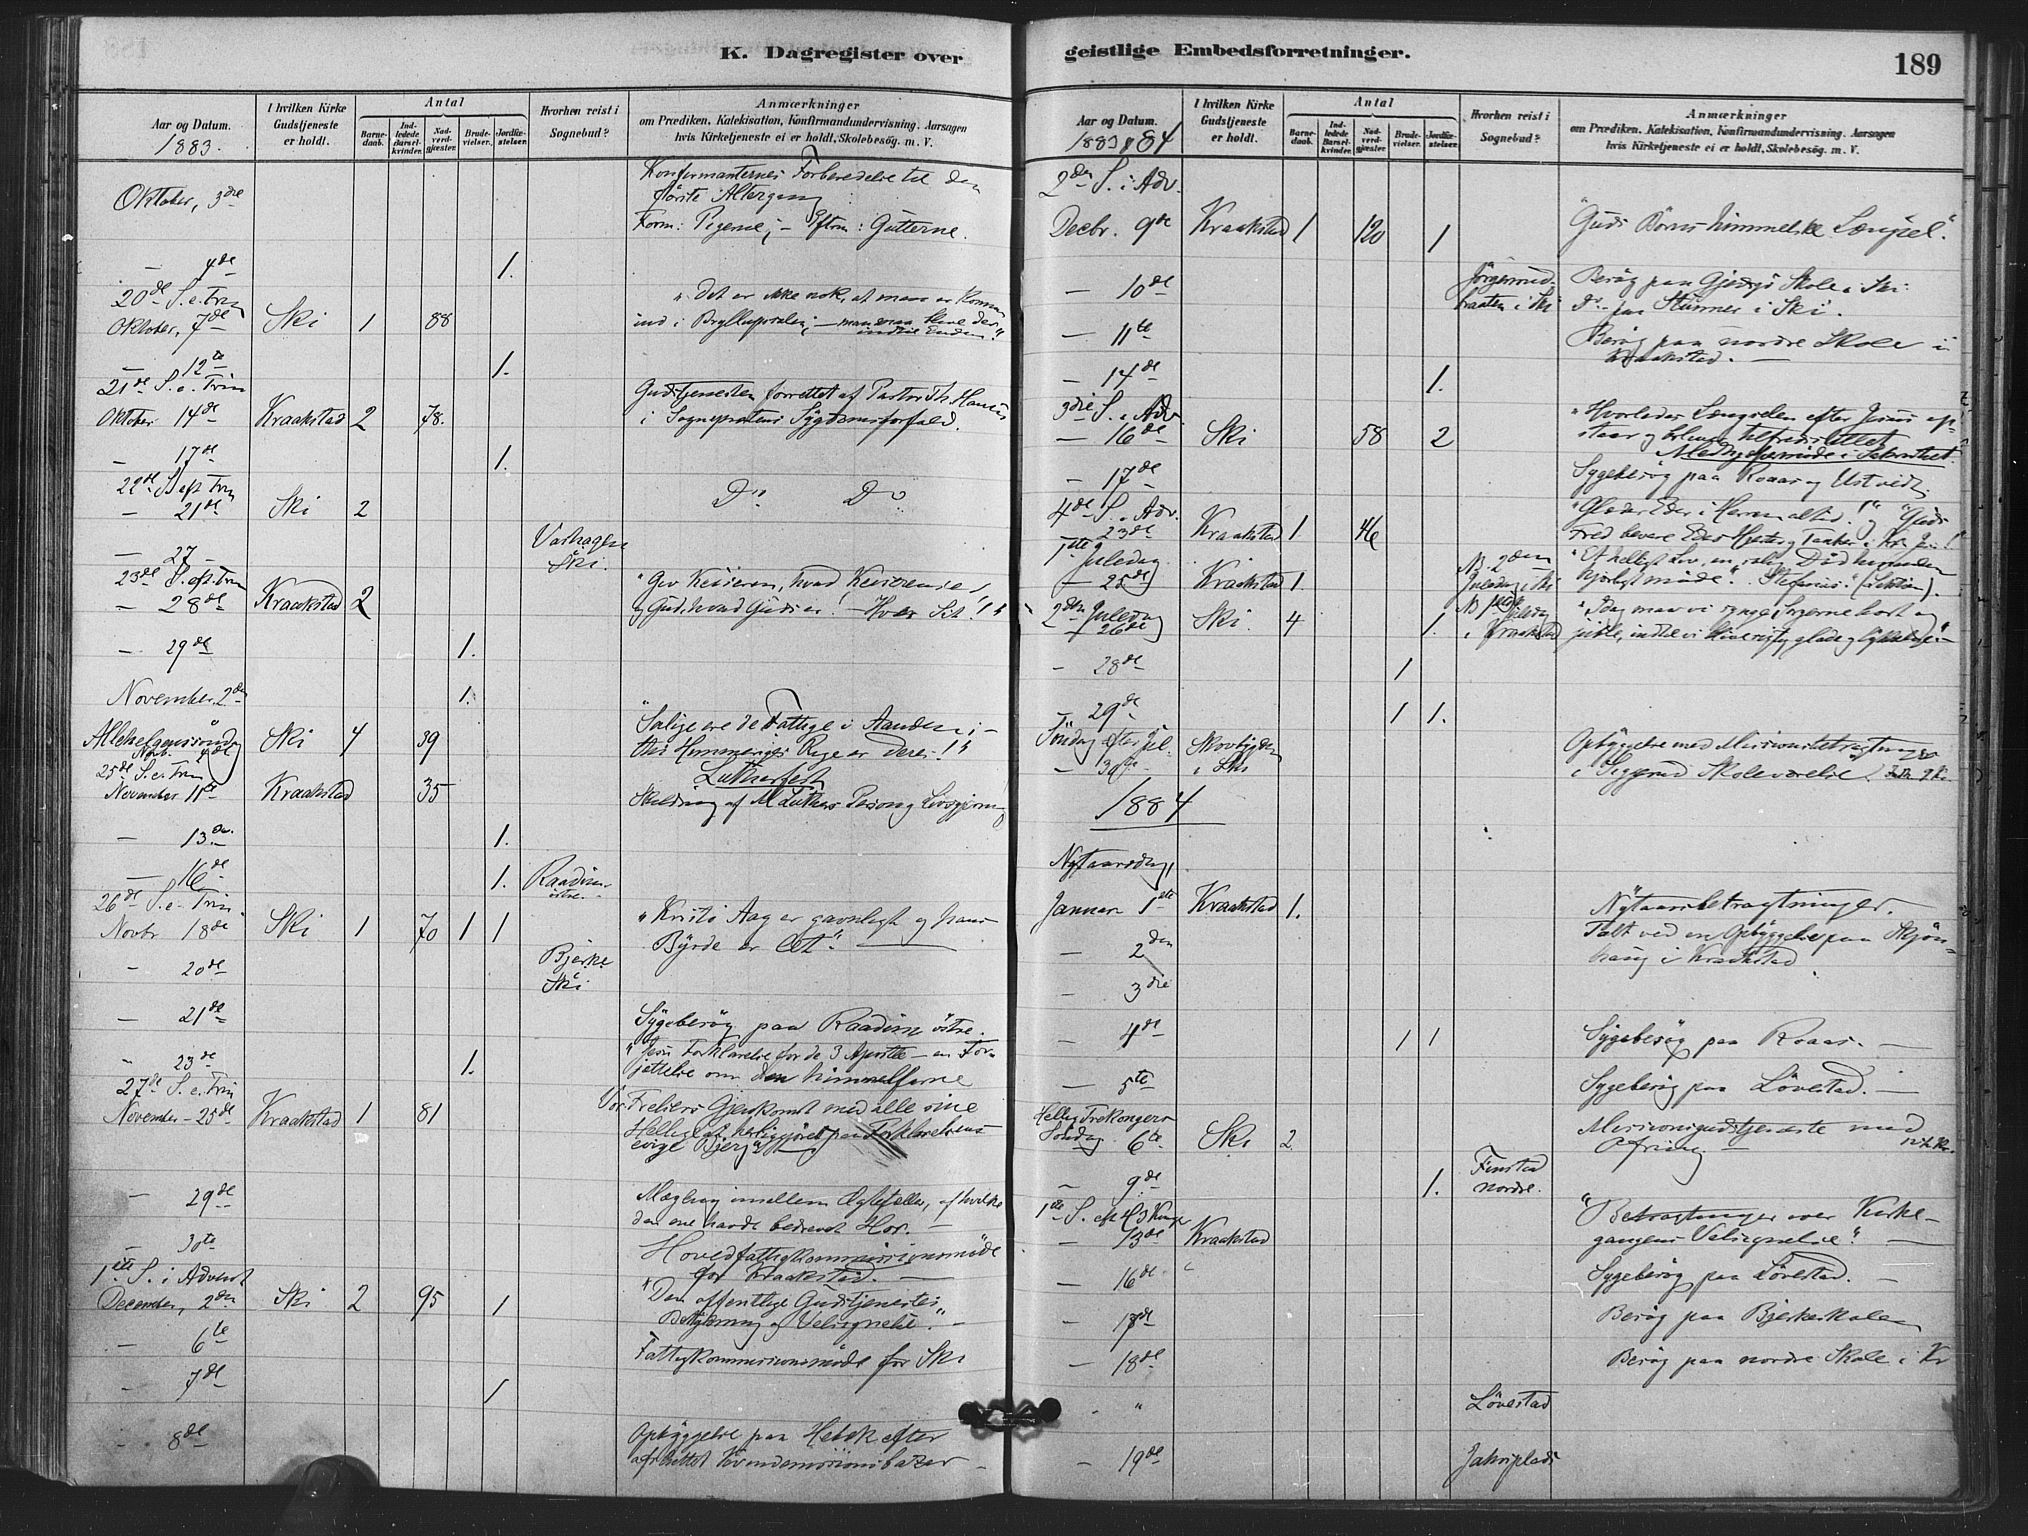 K. Dagregister over
Aar og Datum.
1883.
I hvilken Kirke
Gudstjeneste
er holdt.
Antal
Barne-
daab.
Ind-
ledede
Barsel-
kvinder.
Nad-
verd-
gjæster.
Brude-
vielser.
Jordfæ-
stelser.
Hvorhen reist i
Sognebud?
Anmærkninger
om Prædiken, Katekisation, Konfirmandundervisning, Aarsagen
hvis Kirketjeneste ei er holdt, Skolebesøg. m. V.
Oktober, 3die
Konfirmanternes Forberedelse til den
første Altergang
Form: Pigerne; – Eftm: Gutterne.
— 4de 1.
20de S. e. Trin
Oktober, 7de Ski 1 88
"Det er ikke nok, at man er kommen
ind i Bryllupssalen; – man maa
indtil Enden."
— 12te 1.
21de S. e. Trin
Oktober 14de Kraakstad 2 78.
Gudstjenesten forrettet af Pastor Th. Hansen
i Sognepræstens Sygdomsforfald.
— 17de 1.
22de S. eft Trin
— 21de Ski 2 Do Do
— 27 – Varhagen
Ski.
23de S. eft. Trin
— 28de Kraakstad 2
"Giv Keiseren, hvad Keiserens er,
og Gud, hvad Guds er! – Hver Sit!"
— 29de 1.
November, 2den 1.
Allehelgenssøndag
Novb. 4de Ski 4 39
"Salige ere de Fattige i Aanden; –
thi Himmeriges Rige er deres!"
25de S. e. Trin
November 11te Kraakstad 35
Lutherfest
Skildring af M Luthers Person og Livsgjerning
— 13de. 1.
— 16de 1. Raadim
østre.
26de S. e. Trin.
Novbr 18de Ski 1 70 1 1
"Kristi Aag er gavnligt og hans
Byrde er let."
— 20de Bjerke
Ski
— 21de
Sygebesøg paa Raadim østre.
— 23de 1.
"Jesu Forklarelse for de 3 Apostle – en For-
jættelse om den himmelfarne
27de S. e. Trin
November – 25de Kraakstad 1 81
Vor Frelsers Gjenkomst med alle sine
Hellige at herliggjøres paa Forklarelsens
evige Bjerg"
— 29de
Mægling imellem Ægtefæller, af hvilke
den ene havde bedrevet Hor. —
— 30te
Hovedfattigkommissionsmøde
for Kraakstad. —
1ste S. i Advent
December, 2den Ski 2 95 1
"Den offentlige Gudstjenestes
Betydning og Velsignelse." –
— 6te
Fattigkommissionsmøde for Ski
— 7de 1
— 8de
Opbyggelse paa Hebek efter
afsluttet Kvindemissionsbazar –
geistlige Embedsforretninger.
189
Aar og Datum.
1883 & 84
I hvilken Kirke
Gudstjeneste
er holdt.
Antal
Barne-
daab.
Ind-
ledede
Barsel-
kvinder.
Nad-
verd-
gjæster.
Brude-
vielser.
Jordfæ-
stelser.
Hvorhen reist i
Sognebud?
Anmærkninger
om Prædiken, Katekisation, Konfirmandundervisning, Aarsagen
hvis Kirketjeneste ei er holdt, Skolebesög. m. V.
2den S. i Adv.
Decbr. 9de Kraakstad 1 120 1
"Guds Børns himmelske Længsel."
— 10de
braaten i Ski
Besøg paa Gjedsjø Skole i Ski
Do paa Stunner i Ski.
— 11te
Besøg paa nordre Skole i
Kraakstad. —
— 14de 1.
3die S. i Adv.
— 16de Ski 58 2
"Hvorledes Længselen efter Jesus op-
staar og bliver tilfredsstillet
— 17de
Sygebesøg paa Roaas og Ustvedt.
4de S. i Adv.
23de Kraakstad 1 46
"Glæder Eder i Herren altid!" "Guds
Fred bevare Eders Hjerter og Tanker i Kr. Jes.!"
1ste Juledag
— 25de Kraakstad 1.
NB. 2den
Juledag i Ski
"Et helligt Liv, en salig Død hinanden
kjærligt møde". Stefanus." (Lektien).
2den Juledag
26de Ski. 4 1.
NB første
Juledag
i Kraakstad
"Idag maa vi synge, Sorgerne bort og
juble, indtil vi
— 28de 1
— 29de 1 1.
Søndag efter Jul
— 30te Skovbygden
i Ski
Opbyggelse med Missionsbetragtninger
i Siggerud Skoleværelse.
1884
Nytaarsdag
Januar 1ste Kraakstad 1.
Nytaarsbetragtninger.
— 2den
Talt ved en Opbyggelse paa Skjøn-
haug i Kraakstad.
— 3die
— 4de 1 1
Sygebesøg paa Roaas. —
— 5te
Sygebesøg paa Løvestad. —
Hellig Trekongers
Søndag 6te Ski 2
Missionsgudstjeneste med
Ofring. —
— 9de 1. Finstad
nordre.
1ste S. eft H 3 Konger
— 13de Kraakstad
"Betragtninger over Kirke-
gangens Velsignelse." —
— 16de
Sygebesøg paa Løvestad. —
— 17de
Besøg paa Bjerkeskolen
— 18de
Besøg paa nordre Skole i Kr
— " Løvestad
— 19de Jahrsplads